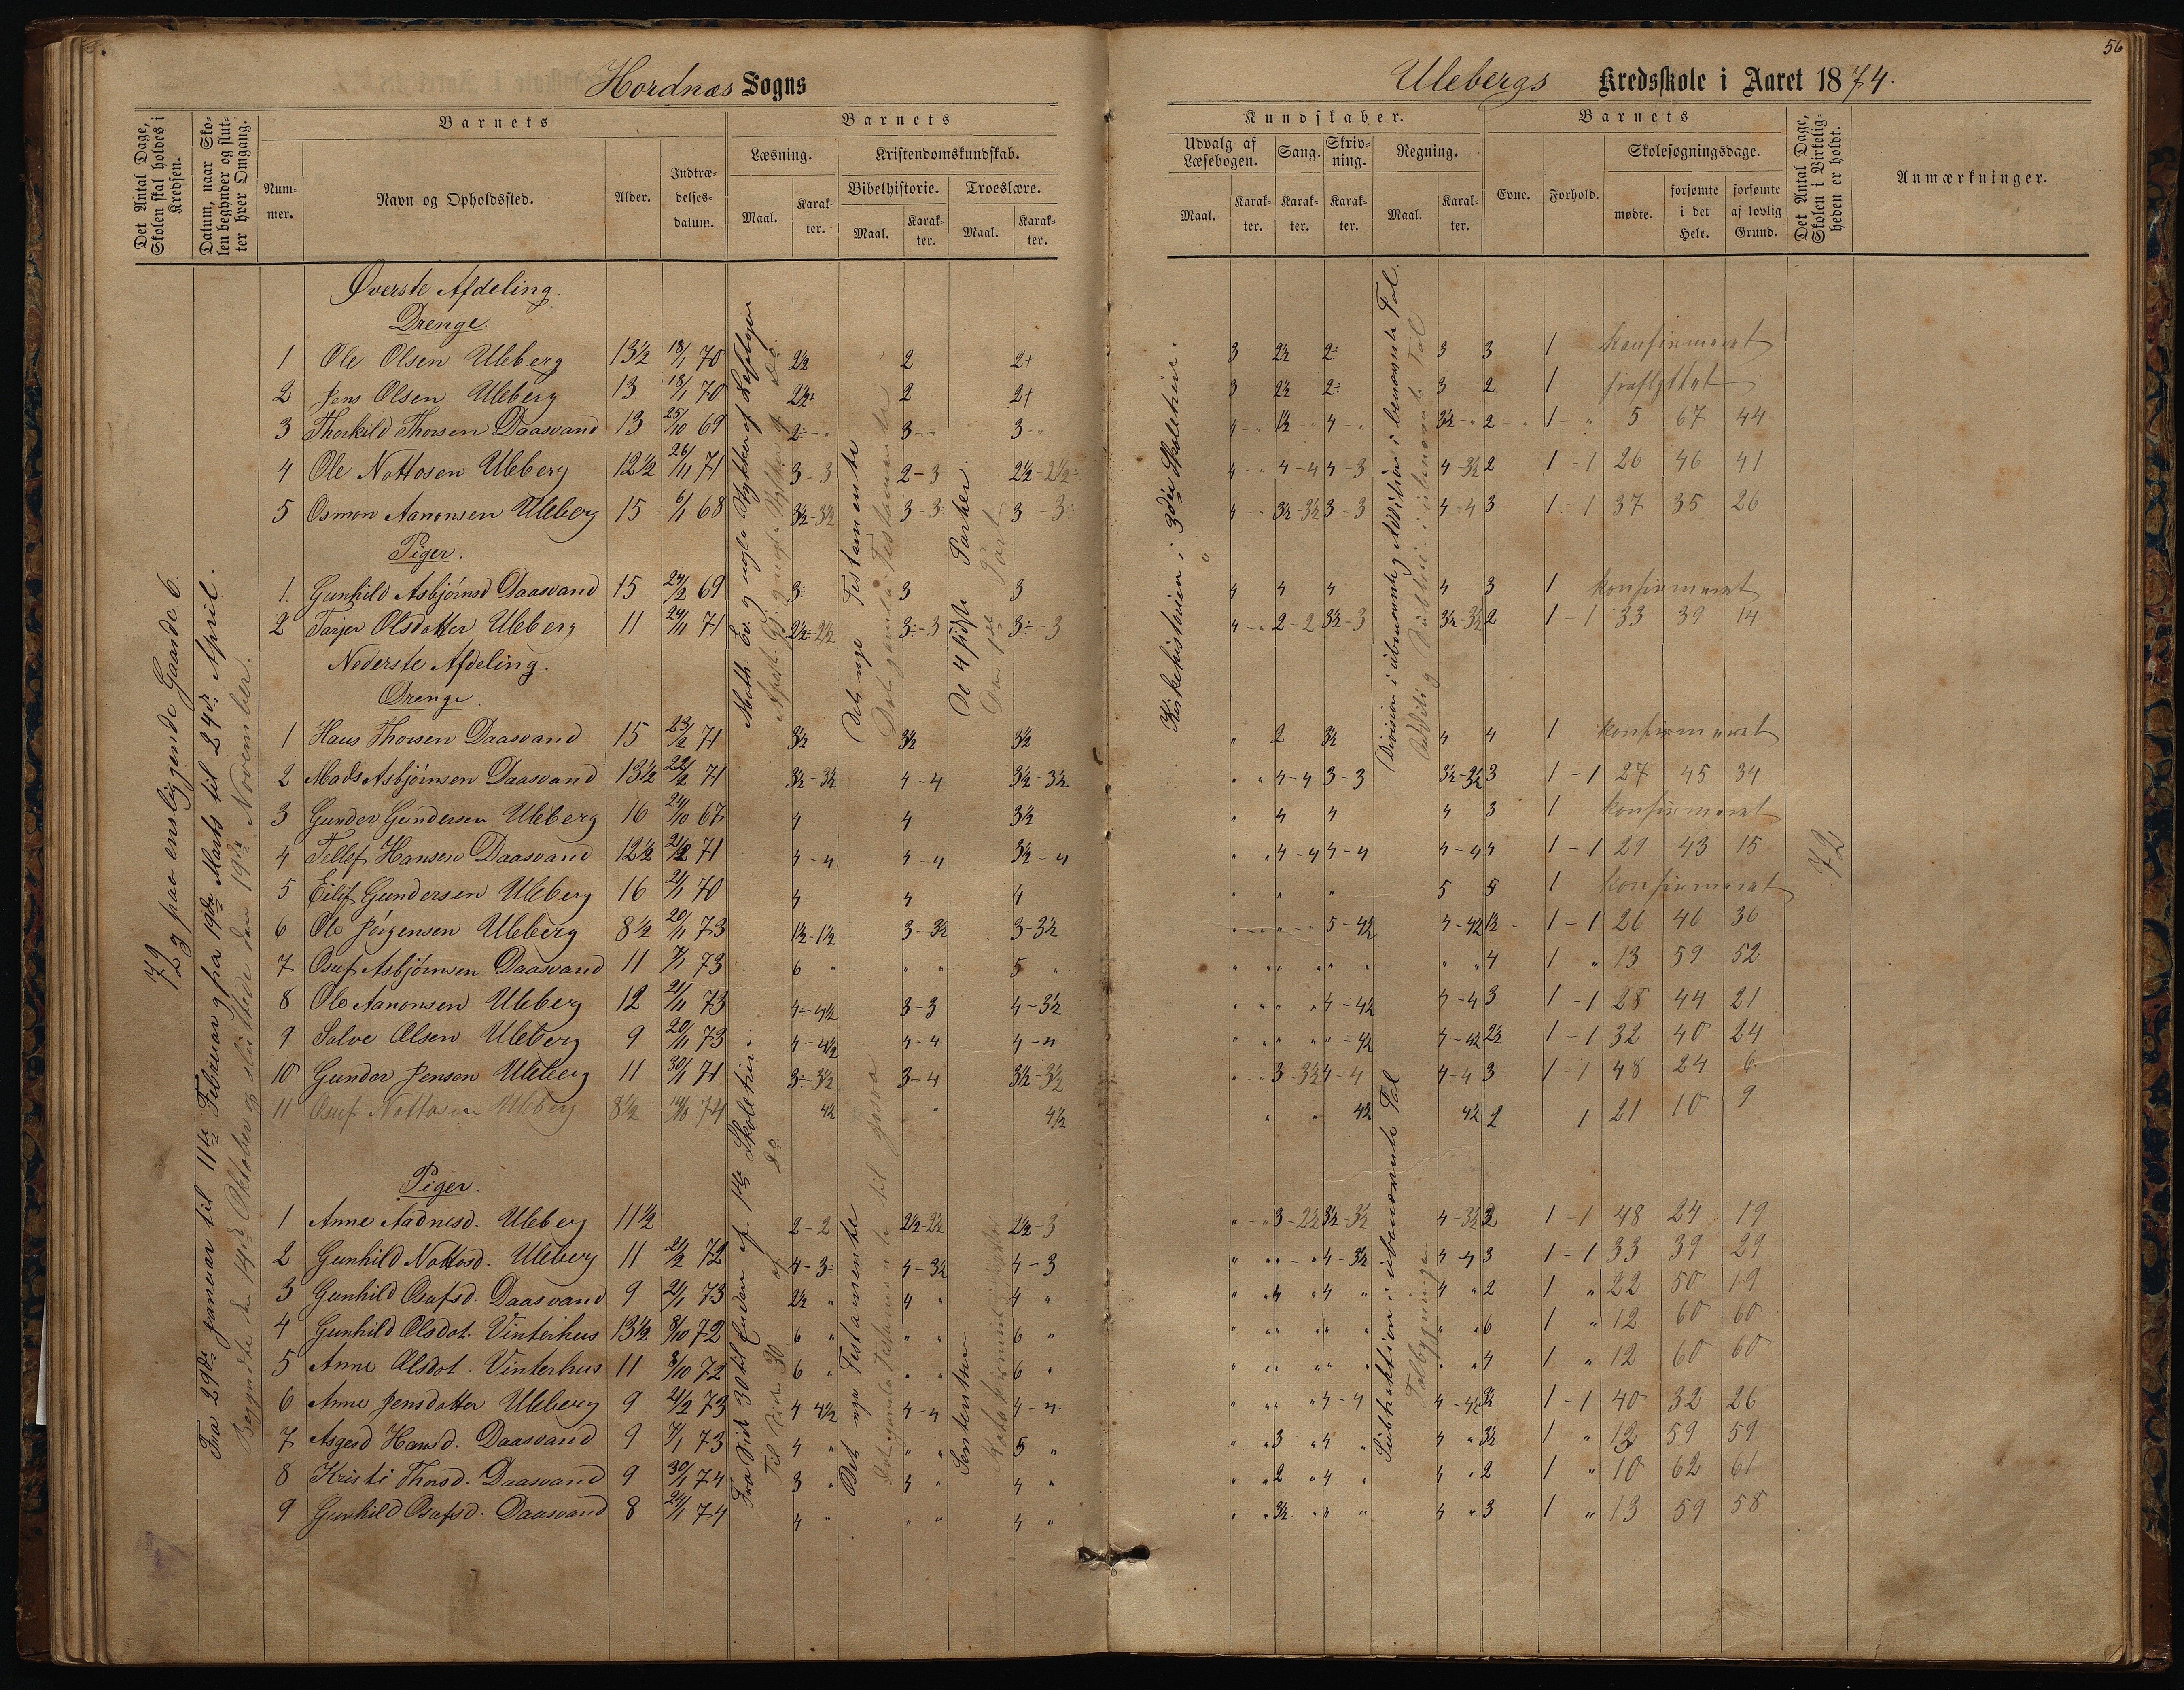 56
Hordnæs Sogns
Ulebergs Kredsskole i Aaret 1874.
Det Antal Dage, Skolen skal holdes i Kredsen.
Datum, naar Skolen begynder og slutter hver Omgang.
Barnets
Nummer.
Navn og Opholdssted.
Alder.
Indtrædelsesdatum.
Barnets
Læsning.
Maal.
Karakter.
Kristendomskundskab.
Bibelhistorie.
Maal.
Karakter.
Troeslære.
Maal.
Karakter.
Kundskaber.
Udvalg af Læsebogen.
Maal.
Karakter.
Sang.
Karakter.
Skrivning.
Karakter.
Regning.
Maal.
Karakter.
Barnets
Evne.
Forhold.
Skolesøgningsdage.
mødte.
forsømte i det Hele.
forsømte af lovlig Grund.
Det Antal Dage, Skolen i Virkeligheden er holdt.
Anmærkninger.
72 paa ensliggende Gaarde 6.
Fra 29de Januar til 11te Februar og fra 19de Marts til 24de April.
Begyndte den 14de Oktober og sluttede den 19de November.
Det nye Testamente
Det gamle Testamente
De 4 sidste Parter.
Den 1ste Part
Kirkehistorien i 3die Skoletrin.
Division i ubenævnte og Addition i benævnte Tal.
Fra Side 30 til Enden af 1ste Skoletrin.
Til Side 30 af do
Det nye Testamente
Subtraktion i ubenævnte Tal
72
Øverste Afdeling.
Drenge.
1 Ole Olsen Uleberg 13½ 18/1 70 2½ 2 2+ 3 2½ 2÷ 3 3 1 konfirmeret
2 Jens Olsen Uleberg 13 18/1 70 2½+ 2 2+ 3 2½ 2÷ 3 2 1 fraflyttet
3 Thorkild Thorsen Daasvand 13 25/10 69 2÷ - " 3 - " 3 - " 4 - " 1½ - " 4 - " 3½ - " 2 - " 1 - " 5 67 44
4 Ole Nottosen Uleberg 12½ 26/11 71 3 - 3 2 - 3 2½ - 2½÷ 4 - " 4 - 4 4 - 3 4 - 3½ 2 1 - 1 26 46 41
5 Osmon Aanonsen Uleberg 15 6/1 68 3½ - 3½ 3 - 3÷ 3 - 3÷ 4 - " 3½ - 3½ 3 - 3 4 - 4 3 1 - 1 37 35 26
Piger.
1. Gunhild Asbjørnsd Daasvand 15 24/2 69 3÷ 3 3 4 4 4 4 3 1 konfirmeret
2 Tarjer Olsdatter Uleberg 11 24/11 71 2½ - 2½ 3÷ - 3 3÷ - 3 4 - " 2 - 2 3½ - 3 3½ - 3½ 2 1 - 1 33 39 14
Nederste Afdeling.
Drenge.
1 Hans Thorsen Daasvand 15 23/2 71 3½ 3½ 3½ " 2 3½ 4 4 1 konfirmeret
2 Mads Asbjørnsen Daasvand 13½ 22/2 71 3½ - 3½ 4 - 4 3½ - 3½ " " 4 - 4 3 - 3 3½ - 3½ 3 1 - 1 27 45 34
3 Gunder Gundersen Uleberg 16 24/10 67 4 4 3½ " 4 4 4 3 1 konfirmeret
4 Tellef Hansen Daasvand 12½ 71 4 - 4 4 - 4 3½ - 4 " " 4 - 4 4 - 4 4 - 4 4 1 - 1 29 43 15
5 Eilif Gundersen Uleberg 16 21/1 70 4 4 4 " " " 5 5 1 konfirmeret
6 Ole Jørgensen Uleberg 8½ 20/11 73 1½ - 1½ 3 - 3½ 3 - 3½ " " 5 - 4½ 4 - 4½ 1½ 1 - 1 26 46 36
7 Osuf Asbjørnsen Daasvand 11 7/1 73 6 " " " 5 " " " " " " " " " 4 1 " 13 59 52
8 Ole Aanonsen Uleberg 12 21/11 73 4÷ - 4½ 3 - 3 4 - 3½ " " " " 4 - 4½ 4 - 4 3 1 - 1 28 44 21
9 Salve Olsen Uleberg 9 20/11 73 4 - 4½ 4 - 4 4 - 4 " " " " " - 4½ 4 - 4½ 2½ 1 - 1 32 40 24
10 Gunder Jensen Uleberg 11 30/1 71 3÷ - 3½ 3 - 4 3½ - 3½ " " 3 - 3½ 4 - 4 4 - 4 3 1 - 1 48 24 6
11 Osuf Nottosen Uleberg 8½ 14/10 74 4½ " 4½ " " 4½ 4½ 2 1 21 10 9
Piger.
1 Anne Aadnesd. Uleberg 11½ 2 - 2 2½ - 2½ 2½ - 3 " - " 3 - 2½ 3½ - 3½ 4 - 3½ 2 1 - 1 48 24 19
2 Gunhild Nottosd. Uleberg 11 21/2 72 4 - 3÷ 4 - 3½ 4 - 3 " " " - " 4 - 3½ 4 - 4 3 1 - 1 33 39 29
3 Gunhild Osufsd. Daasvand 9 21/1 73 2½ " 4 " 4 " " " 4 " 4 " 4 " 2 1 " 22 50 19
4 Gunhild Olsdot. Vinterhus 13½ 8/10 72 6 " " " 6 " " " " " " " " " 6 1 " 12 60 60
5 Anne Olsdot. Vinterhus 11 8/10 72 6 " " " 6 " " " " " " " " " 4 1 " 12 60 60
6 Anne Jensdatter Uleberg 9 21/2 73 4 - 4½ 4 - 4 4 - 4 " " " " 4 - 4 4 - 4½ 3½ 1 - 1 40 32 26
7 Asgerd Hansd. Daasvand 9 7/1 73 4 " " " 5 " " " 3 " 4 " 4 " 3½ 1 " 12 59 59
8 Kristi Thorsd. Daasvand 9 30/1 74 3 " 3 " 4 " " " 2 " 4 " 4 " 2 1 " 10 62 61
9 Gunhild Osufsd. Daasvand 8 24/1 74 4 " " " 4 " " " 3½ " " " 4 " 3 1 " 13 59 58